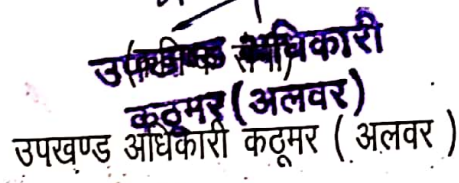 उपखण्ड अधिकारी
कठूमर (अलवर)
उपखण्ड अधिकारी कठूमर ( अलवर )